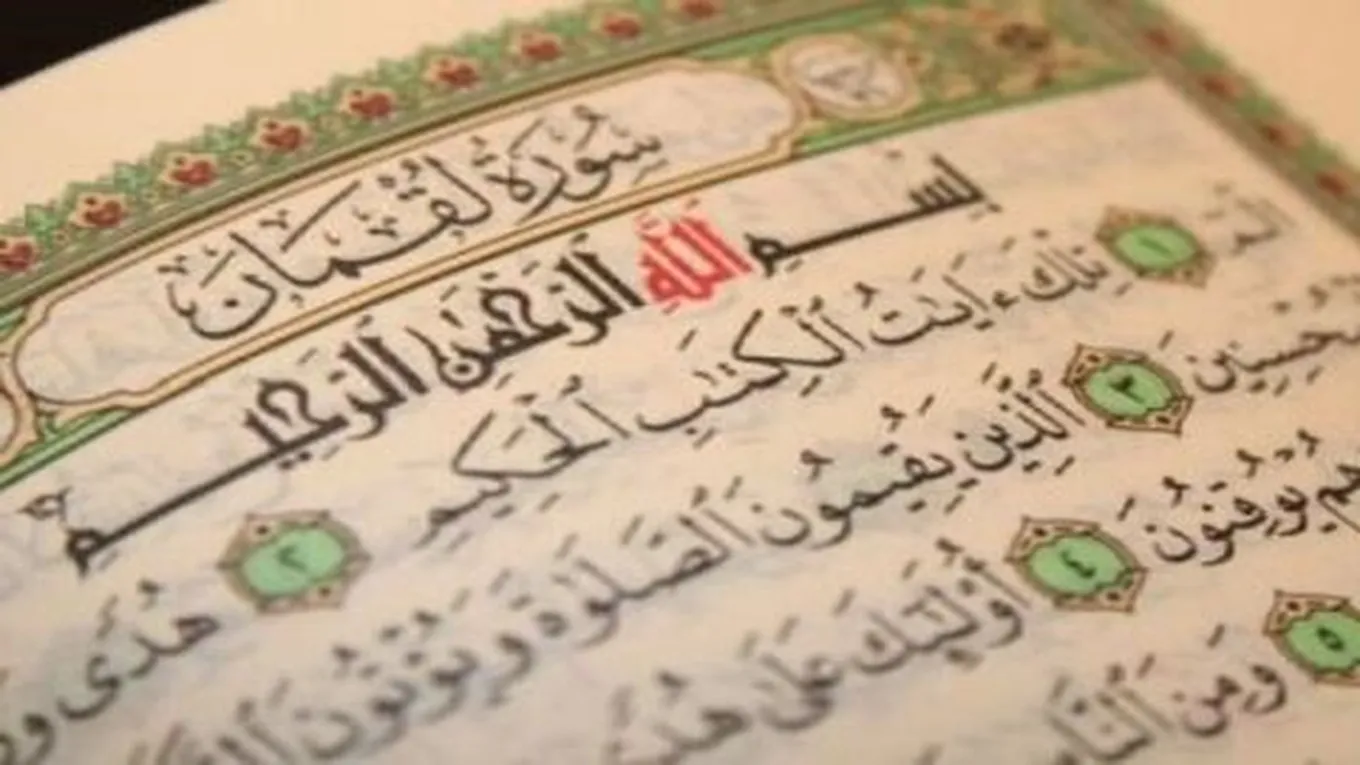 سُورَةُ لُقْمَان
بِسْمِ اللَّهِ الرَّحْمَٰنِ الرَّحِيمِ
الٓمٓ ١ تِلْكَ ءَايَٰتُ ٱلْكِتَٰبِ ٱلْحَكِيمِ ٢ هُدًى
ٱلَّذِينَ يُقِيمُونَ ٱلصَّلَوٰةَ وَيُؤْتُونَ ٣
هُم يُوقِنُونَ ٤ أُوْلَٰٓئِكَ عَلَىٰ
٥ وَمِنَ ٱلنَّاسِ